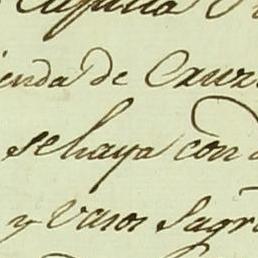 Capilla
enda de Cruz
se haya con
y Vasos Sagr